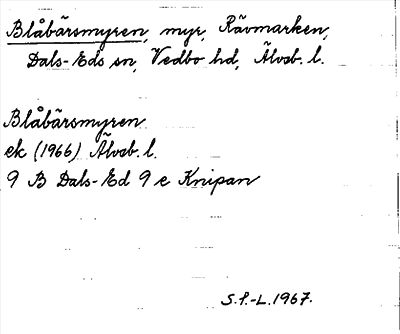 Blåbärsmyren, myr, Rävmarken,
Dals-Eds sn, Vedbo hd, Älvsb. l.
Blåbärsmyren
ek (1966) Älvsb. l.
9 B Dals-Ed 9 e Knipan
S.F.-L. 1967.